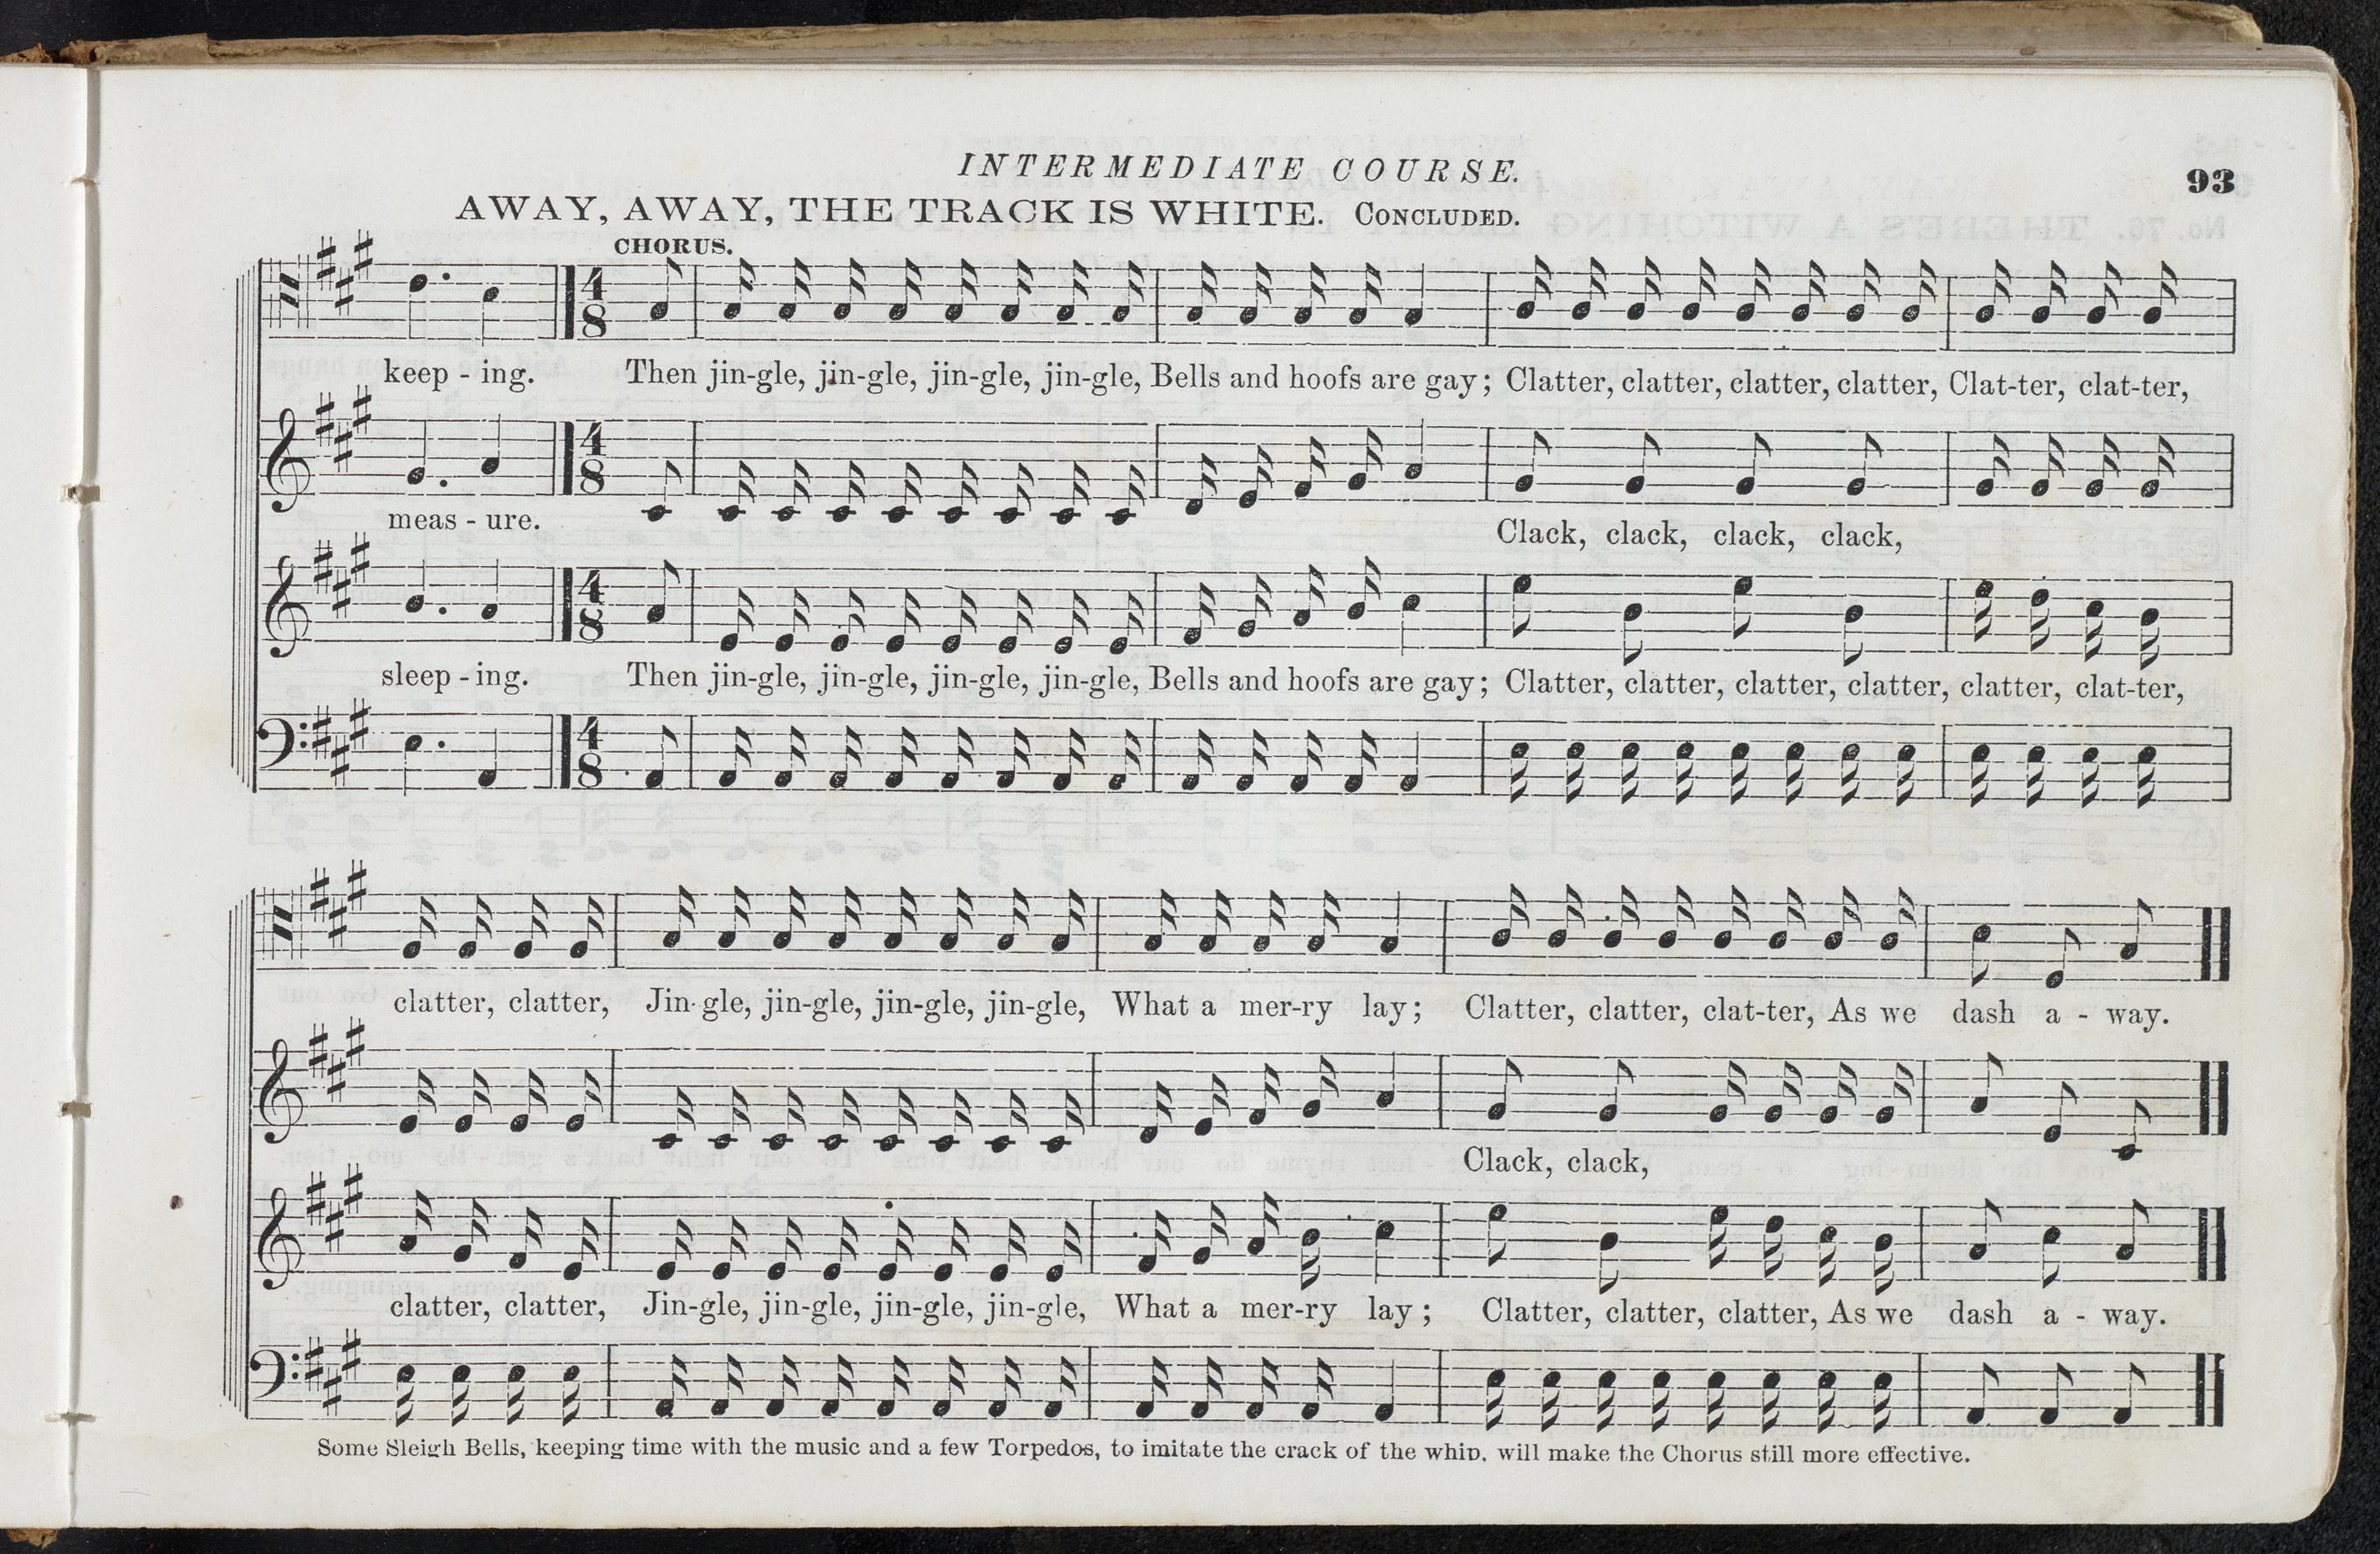 INTERMEDIATE COURSE.
93
AWAY, AWAY, THE TRACK IS WHITE. CONCLUDED.
CHORUS.
4
8
keep - ing. Then jin-gle, jin-gle, jin-gle, jin-gle, Bells and hoofs are gay; Clatter, clatter, clatter, clatter, Clat-ter, clat-ter,
4
8
meas - ure. Clack, clack, clack, clack,
4
8
sleep - ing. Then jin-gle, jin-gle, jin-gle, jin-gle, Bells and hoofs are gay; Clatter, clatter, clatter, clatter, clatter, clat-ter,
4
8
clatter, clatter, Jin-gle, jin-gle, jin-gle, jin-gle, What a mer-ry lay; Clatter, clatter, clat-ter, As we dash a - way.
Clack, clack,
clatter, clatter, Jin-gle, jin-gle, jin-gle, jin-gle, What a mer-ry lay; Clatter, clatter, clatter, As we dash a - way.
Some Sleigh Bells, keeping time with the music and a few Torpedos, to imitate the crack of the whip, will make the Chorus still more effective.